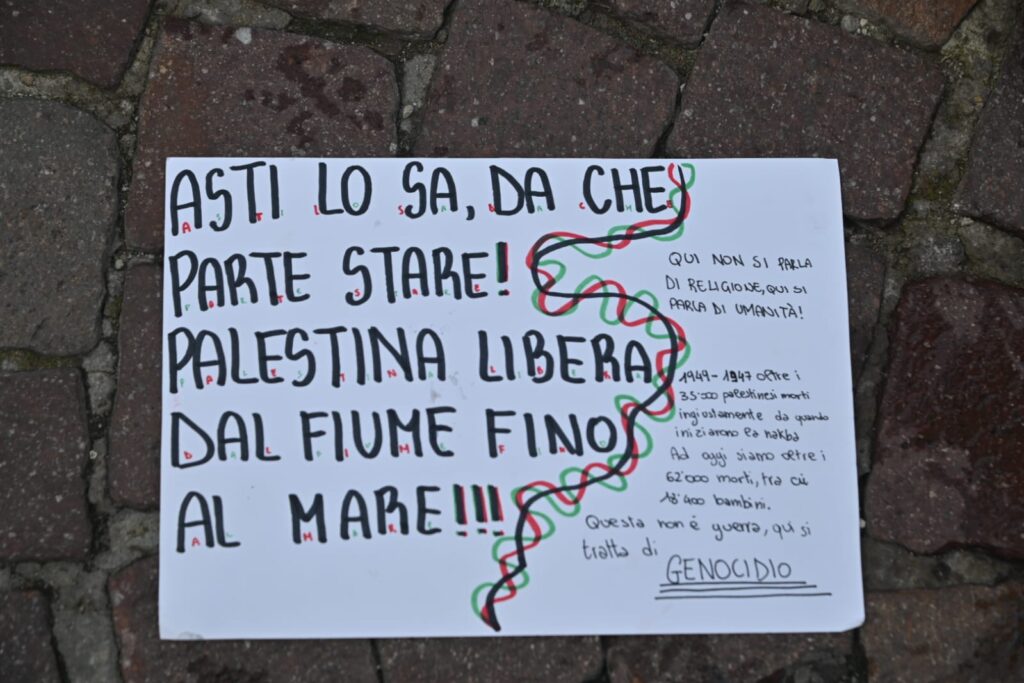 ASTI LO SA, DA CHE
PARTE STARE!
PALESTINA LIBERA
DAL FIUME FINO
AL MARE!!!
QUI NON SI PARLA
DI RELIGIONE, QUI SI
PARLA DI UMANITÀ!
1949-1947 oltre i
35'000 palestinesi morti
ingiustamente da quando
iniziarono la nakba
Ad oggi siamo oltre i
62'000 morti, tra cui
18'400 bambini.
Questa non è guerra, qui si
tratta di
GENOCIDIO